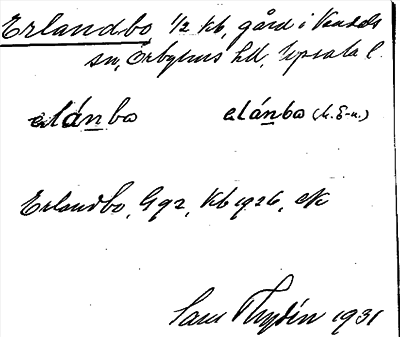 Erlandbo 1/2 kb, gård i Vendels
sn, Örbyhus hd, Uppsala l.
elánbo elánbo
Erlandbo, Gg2, Kb 1926, ek
Sam Thydén 1931